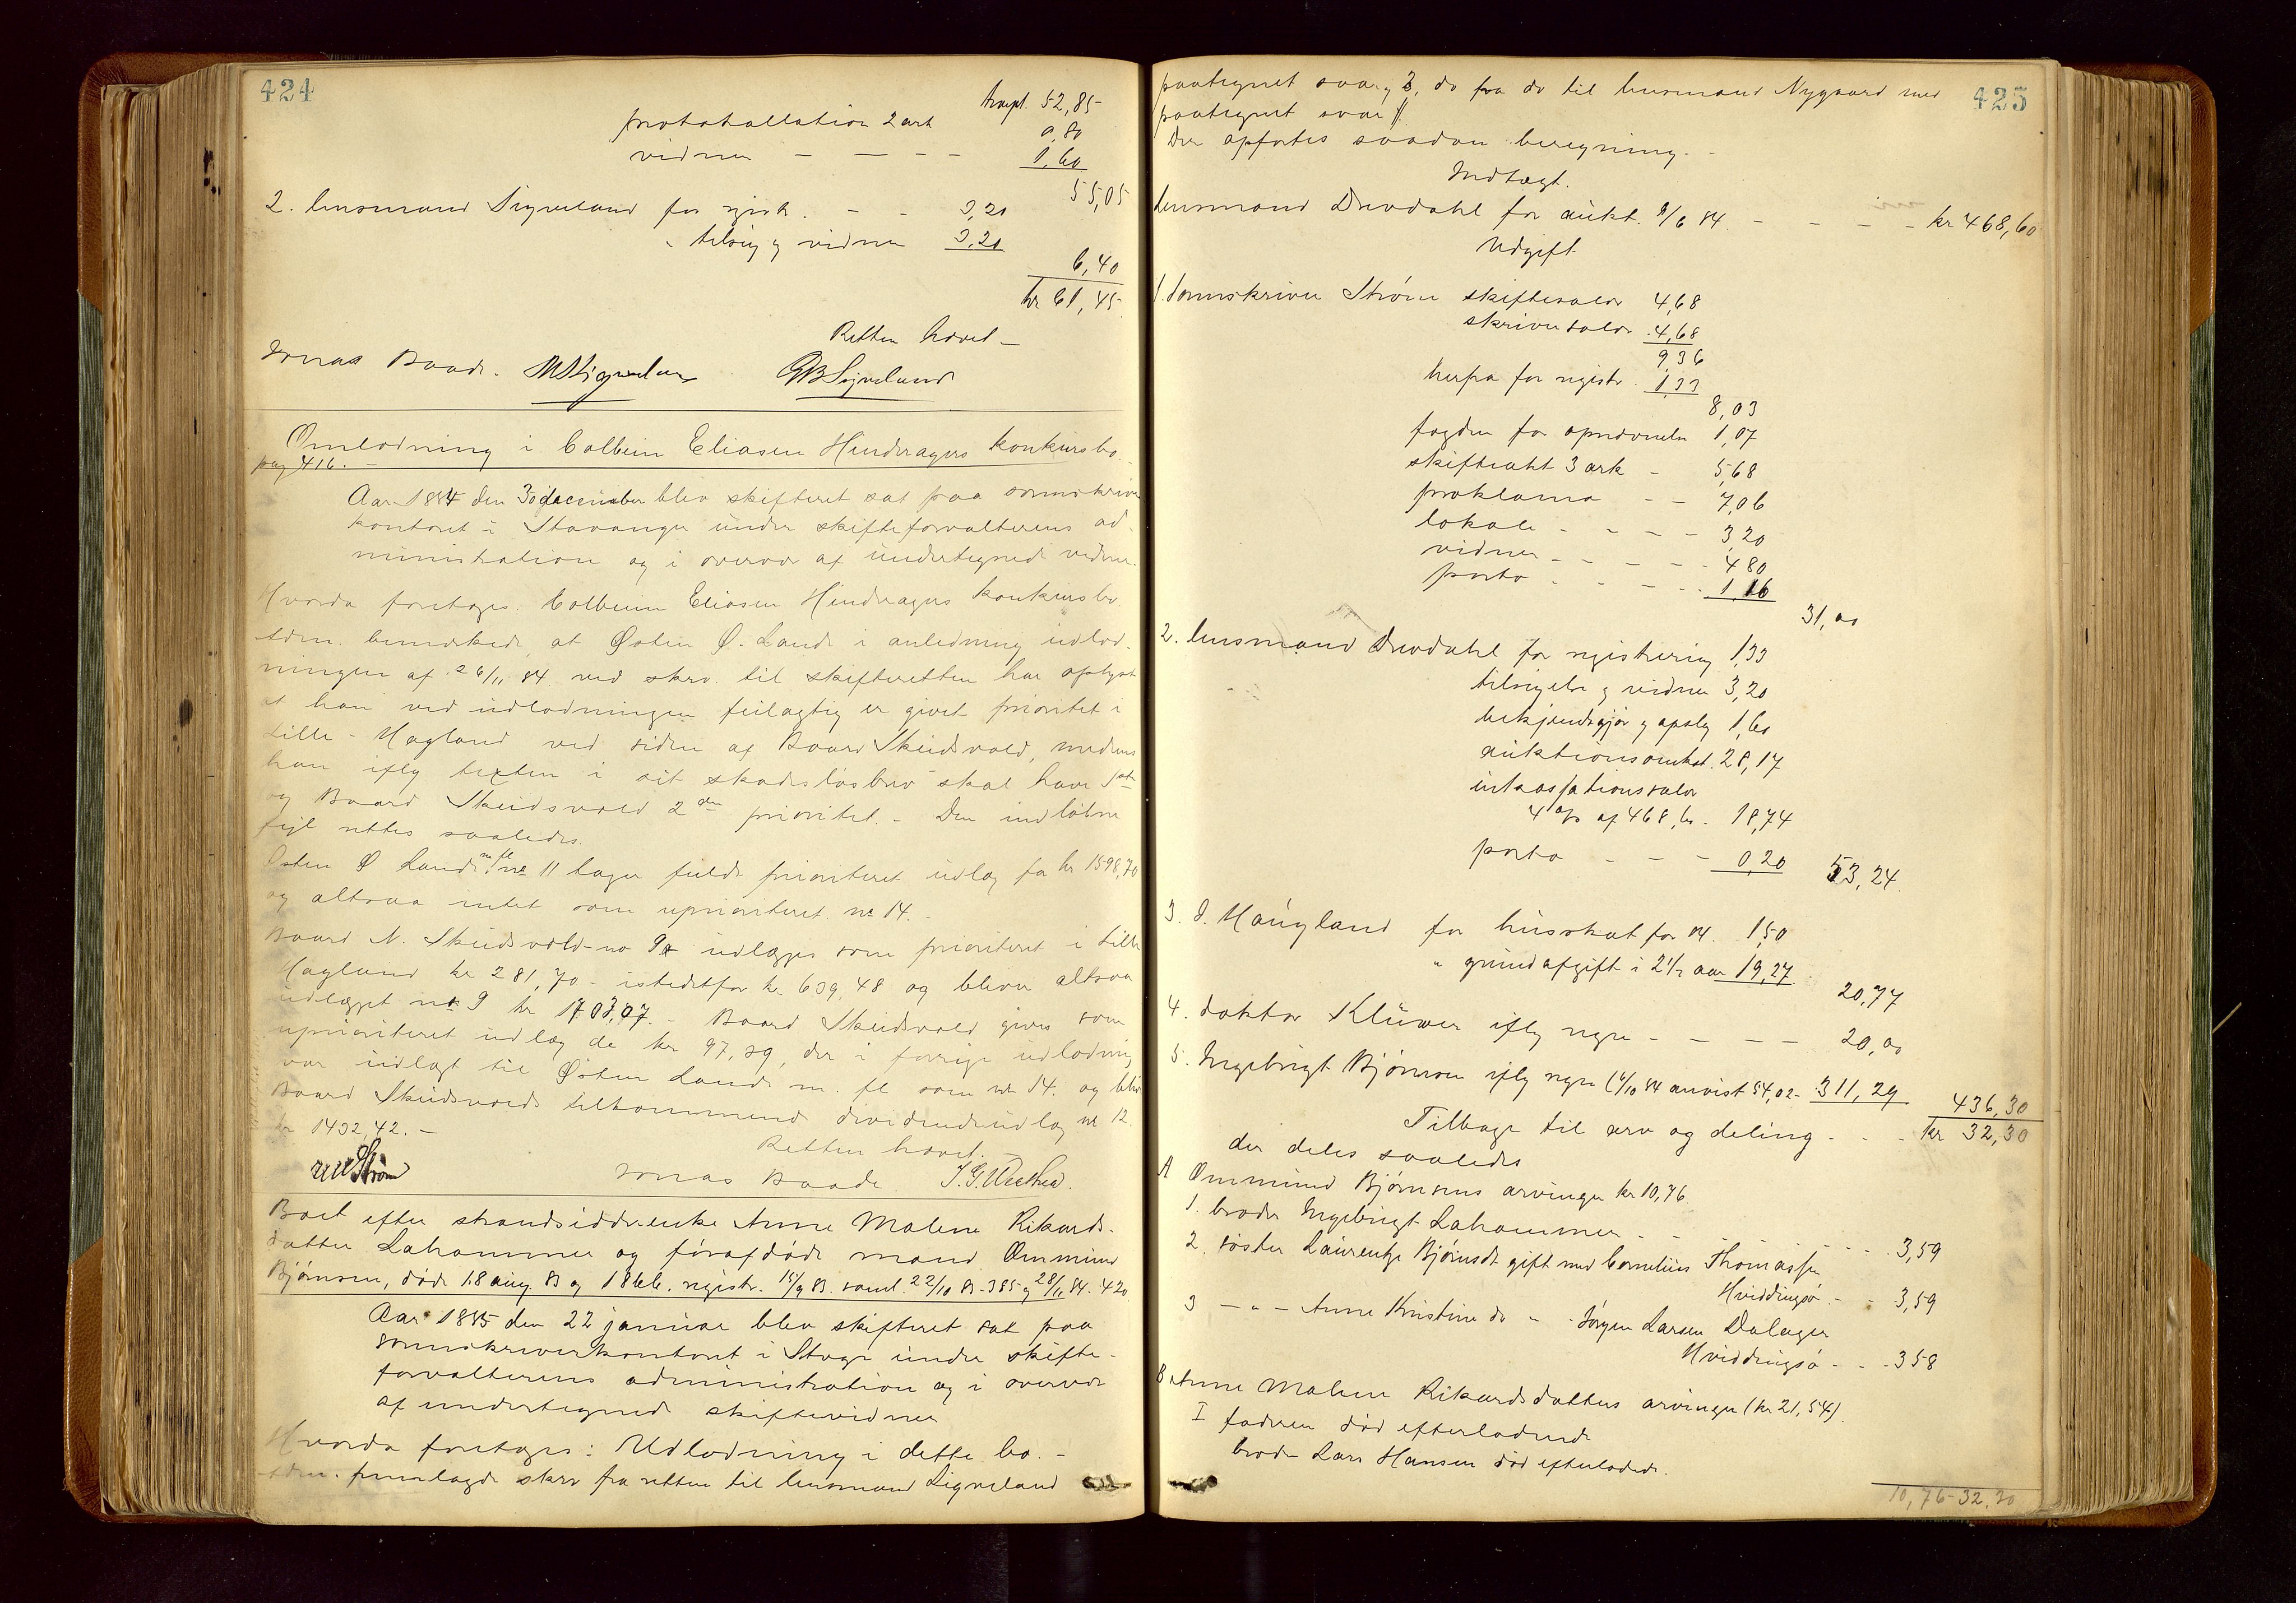 424
transpt. 52,85
protokollation 2 ark 0,80
vidner — — — — 1,60
55,05
2. lensmand Sigveland for registr. - - 3,20
" tilsig. og vidner 3,20
6,40
kr 61,45
Retten hævet —
Jonas Baade. MSigveland GBSigveland
Omlodning i Colbein Eliasen Hinderagers konkursbo
pag 416. —
Aar 1884 den 30 december blev skifteret sat paa sorenskriver
kontoret i Stavanger under skifteforvalterens ad-
ministration og i overvær af undertegnede vidner.
Hvorda foretoges: Colbein Eliasen Hinderagers konkursbo
Adm. bemærkede, at Østen Ø. Lande i anledning udlod-
ningen af 26/11 84 ved skrv. til skifteretten har oplyst
at han ved udlodningen feilagtig er givet prioritet i
Lille-Hagland ved siden af Baard Skeidsvold, medens
han ifly texten i sit skadesløsbrev skal have 1ste
og Baard Skeidsvold 2den prioritet. - Den indløbne
fejl rettes saaledes.
Østen Ø Lande m. fl. no 11 tager fuldt prioriteret udlæg for kr 1598,70
og altsaa intet som uprioriteret no 14. -
Baard N. Skeidsvold no 9 udlægges som prioriteret i Lille
Hagland kr 281,70 - istedetfor kr. 639,48 og bliver altsaa
udlægget no 9 kr 1703,07. - Baard Skeidsvold gives som
uprioriteret udlæg de kr 97,39, der i forrige udlodning
var udlagt til Østen Lande m. fl som no 14. og bliver
Baard Skeidsvolds tilkommende dividendeudlæg no 12.
kr 1432,42. —
Retten hævet. —
Strøm Jonas Baade.
Boet efter strandsidderenke Anne Malene Rikards-
datter Lahammer og førafdøde mand Ommund
Bjørnsen, døde 18 aug. 83 og 1866. registr. 15/9 83. saml. 22/10 83-385 og 28/11 84. 420
Aar 1885 den 22 januar blev skifteret sat paa
sorenskriverkontoret i Stvgr under skifte-
forvalterens administration og i overvær
af undertegnede skiftevidner
Hvorda foretoges: Udlodning i dette bo. -
Adm. fremlagde skrv fra retten til lensmand Sigveland
425
paategnet svar, do fra do til lensmand Nygaard med
paategnet svar
Der opførtes saadan beregning. -
Indtægt.
lensmand Drevdahl for aukt. 9/6 84 - - - - kr 468,60
Udgift
1. sorenskriver Strøm skiftesalær 4,68
skriversalær 4,68
9,36
herfra for registr. 1,33
8,03
fogden for opnævnelse 1,07
skifteakt 3 ark - 5,68
proklama - - 7,06
lokale - - - - 3,20
vidner - - - - 4,80
porto - - - - 1,16
31,00
2. lensmand Drevdahl for registrering 1,33
tilsigelse og vidner 3,20
bekjendtgjør og opslg 1,60
auktionsomkst. 28,17
inkassationssalær
4 % af 468,60 - 18,74
porto - - - 0,20
53,24
3. J. Haugland for husskat for 84. 1,50
" grundafgift i 2 1/2 aar 19,27
20,77
4. doktor Klüwer ifly regn - - - - 20,00
5. Ingebrigt Bjørnson ifly regn (6/10 84 anvist 54,02- 311,29
436,30
Tilbage til arv og deling - - - kr 32,30
der deles saaledes
A Ommund Bjørnsens arvinger kr 10,76
1. broder Ingebrigt Lahammer - - - - - 3,59
2. søster Laurentze Bjørnsdt gift med Cornelius Thomassen
Hviddingsø - - 3,59
3 — " — Anne Kristine do " Jørgen Larsen Dalager
Hviddingsø - - - 3,58
B Anne Malene Rikardsdatters arvinger (kr 21,54).
I faderen død efterladende
broder Lars Hansen død efterladende.
10,76-32,30